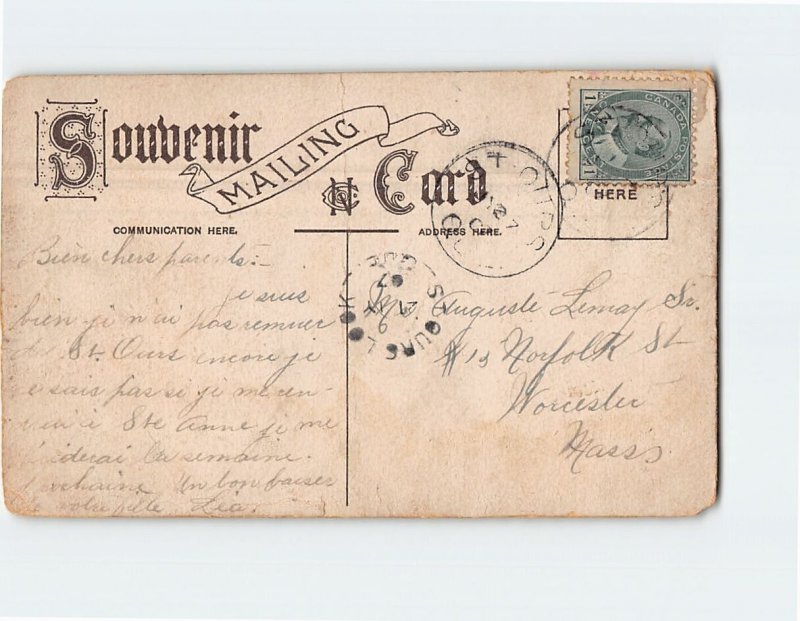 Souvenir
MAILING
Card
COMMUNICATION HERE.
ADDRESS HERE.
HERE
CANADA POSTAGE
1 CENTS 1
ST OURS
Bien chers parents:-
je suis
bien je n'ai pas remuer
de St. Ours encore je
sais pas si je me en-
à Ste Anne je me
la semaine
prochaine Un bon baiser
de votre fille Léa.
Mr. Auguste Lemay Sr.
#13 Norfolk St
Worcester
Mass